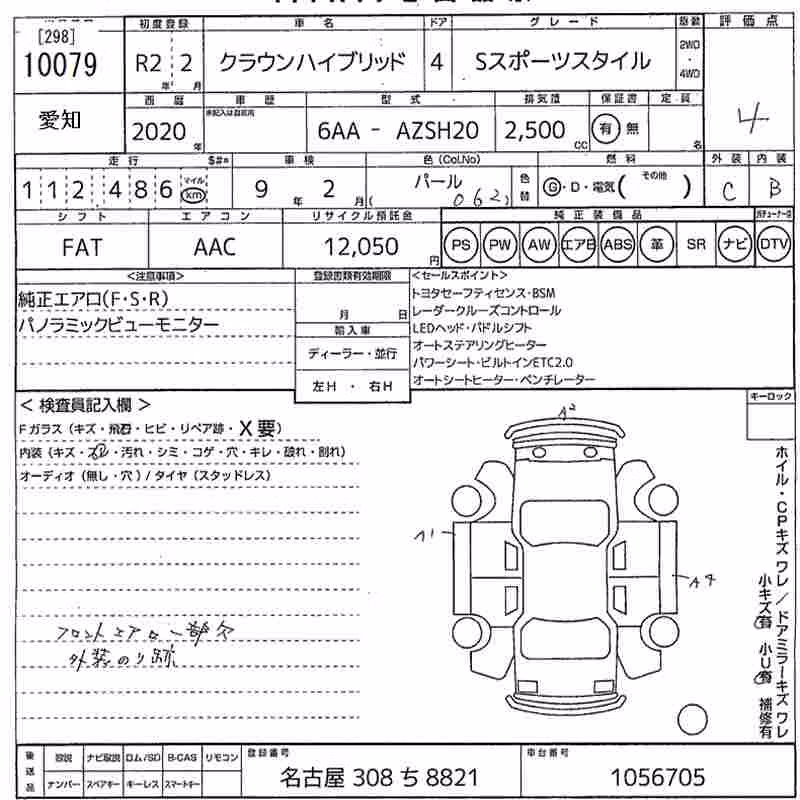 [298]
10079
愛知
初度登録 車名 ドア グレード 駆動 評価点
R2 年 2 月 クラウンハイブリッド 4 Sスポーツスタイル 2WD・4WD
西暦 車歴 型式 排気量 保証書 定員
2020年 未記入は自家用 6AA - AZSH20 2,500 CC 有 無 名
4
走行 車検 色(Col.No) 燃料 外装 内装
112,486 マイル km 9年 2月 パール (062) 色替 G・D・電気( その他 ) C B
シフト エアコン リサイクル預託金 純正装備品
FAT AAC 12,050円 PS PW AW エアB ABS 革 SR ナビ DTV
<注意事項> 登録書類有効期限 <セールスポイント>
純正エアロ(F・S・R)
パノラミックビューモニター
月 日
輸入車
ディーラー・並行
左H ・ 右H
トヨタセーフティセンス・BSM
レーダークルーズコントロール
LEDヘッド・パドルシフト
オートステアリングヒーター
パワーシート・ビルトインETC2.0
オートシートヒーター・ベンチレーター
キーロック
< 検査員記入欄 >
Fガラス (キズ・飛石・ヒビ・リペア跡・X要)
内装 (キズ・スレ・汚れ・シミ・コゲ・穴・キレ・破れ・割れ)
オーディオ (無し・穴) / タイヤ (スタッドレス)
A2
A1
A4
フロントエアロ一部欠
外装のり跡
ホイル・CPキズ ワレ / ドアミラーキズ ワレ
小キズ有 小U有 補修有
後送品 取説 ナビ取説 ロム/SD B-CAS リモコン
ナンバー スペアキー キーレス スマートキー
登録番号 名古屋 308 ち 8821
車台番号 1056705